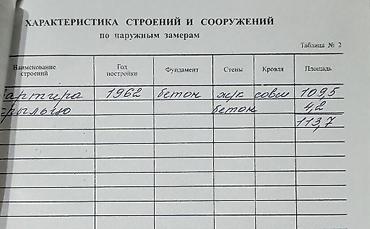 ХАРАКТЕРИСТИКА СТРОЕНИЙ И СООРУЖЕНИЙ
по наружным замерам
Таблица № 2
Наименование строений Год постройки Фундамент Стены Кровля Площадь
квартира 1962 бетон ж/к совм 109,5
крыльцо бетон 4,2
113,7